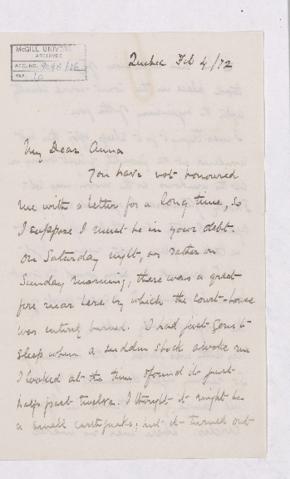 McGILL UNIVERSITY
ARCHIVES
ACC. NO.
REF.
Quebec Feb 4/72
My Dear Anna
You have not honoured
me with a letter for a long time, so
I suppose I must be in your debt
on Saturday night, or rather on
Sunday morning, there was a great
fire near here by which the Court-house
was entirely burned. I had just gone to
sleep when a sudden shock awoke me
I looked at the time & found it just
half past twelve. I thought it might be
a small earthquake; but it turned out